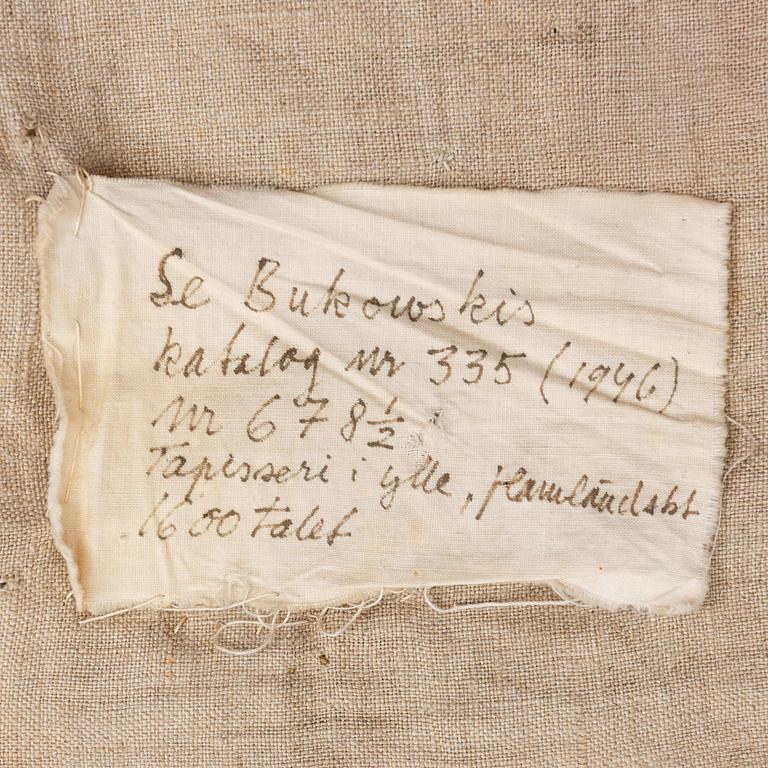 Se Bukowskis
katalog nr 335 (1946)
Nr 678 1/2
Tapisseri i ylle, flamländskt
1600 talet